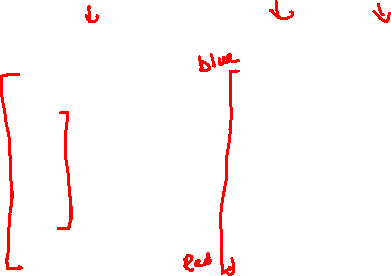 blue
Red